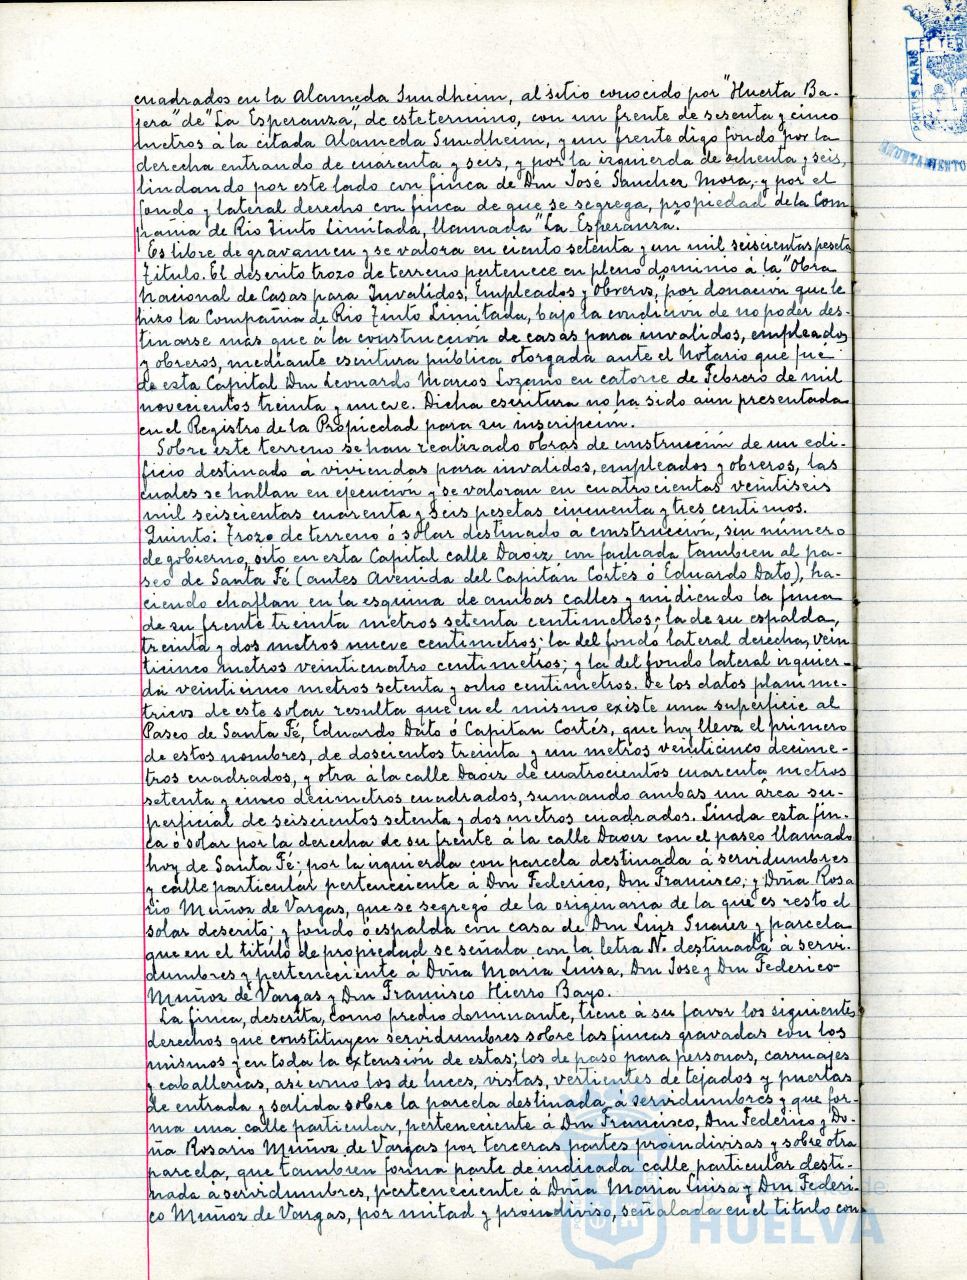 cuadrados en la Alameda Sundheim, al sitio conocido por "Huerta Ba-
jera" de "La Esperanza", de este termino, con un frente de sesenta y cinco
metros á la citada Alameda Sundheim, y un frente digo fondo por la
derecha entrando de cuarenta y seis, y por la izquierda de ochenta y seis,
lindando por este lado con finca de Don José Sanchez Mora, y por el
fondo y lateral derecho con finca de que se segrega, propiedad de la Com
pañia de Rio Tinto Limitada, llamada "La Esperanza".
Es libre de gravamen y se valora en ciento setenta y un mil seiscientas pesetas
Titulo. El descrito trozo de terreno pertenece en pleno dominio á la "Obra
Nacional de Casas para Invalidos, Empleados y Obreros," por donación que le
hizo la Compañia de Rio Tinto Limitada, bajo la condición de no poder des-
tinarse más que á la construcción de casas para invalidos, empleados
y obreros, mediante escritura pública otorgada ante el Notario que fué
de esta Capital Don Leonardo Marcos Lozano en catorce de Febrero de mil
novecientos treinta y nueve. Dicha escritura no ha sido aún presentada
en el Registro de la Propiedad para su inscripción.
Sobre este terreno se han realizado obras de construcción de un edi-
ficio destinado á viviendas para invalidos, empleados y obreros, las
cuales se hallan en ejecución y se valoran en cuatrocientas veintiseis
mil seiscientas cuarenta y seis pesetas cincuenta y tres centimos.
Quinto: Trozo de terreno ó solar destinado á construcción, sin número
de gobierno, sito en esta Capital calle Daoiz con fachada tambien al pa-
seo de Santa Fé (antes Avenida del Capitán Cortés ó Eduardo Dato), ha-
ciendo chaflan en la esquina de ambas calles y midiendo la finca
de su frente treinta metros setenta centimetros; la de su espalda,
treinta y dos metros nueve centimetros; la del fondo lateral derecha, vein
ticinco metros veinticuatro centimetros; y la del fondo lateral izquier-
da veinticinco metros setenta y ocho centimetros. De los datos planime-
tricos de este solar resulta que en el mismo existe una superficie al
Paseo de Santa Fé, Eduardo Dato ó Capitan Cortés, que hoy lleva el primero
de estos nombres, de doscientos treinta y un metros veinticinco decime-
tros cuadrados, y otra á la calle Daoiz de cuatrocientos cuarenta metros
setenta y cinco decimetros cuadrados, sumando ambas un área su-
perficial de seiscientos setenta y dos metros cuadrados. Linda esta fin-
ca ó solar por la derecha de su frente á la calle Daoiz con el paseo llamado
hoy de Santa Fé; por la izquierda con parcela destinada á servidumbres
y calle particular perteneciente á Don Federico, Don Francisco, y Doña Rosa
rio Muñoz de Vargas, que se segregó de la originaria de la que es resto el
solar descrito; y fondo ó espalda con casa de Don Luis Suarez y parcela
que en el titulo de propiedad se señala con la letra N. destinada á servi-
dumbres y perteneciente á Doña Maria Luisa, Don Jose y Don Federico
Muñoz de Vargas y Don Francisco Hierro Bayo.
La finca, descrita, como predio dominante, tiene á su favor los siguientes
derechos que constituyen servidumbres sobre las fincas gravadas con los
mismos y en toda la extensión de estas; los de paso para personas, carruajes
y caballerias, asi como los de luces, vistas, vertientes de tejados y puertas
de entrada y salida sobre la parcela destinada á servidumbres y que for-
ma una calle particular, perteneciente á Don Francisco, Don Federico y Do-
ña Rosario Muñoz de Vargas por terceras partes proindivisas y sobre otra
parcela, que tambien forma parte de indicada calle particular desti-
nada á servidumbres, perteneciente á Doña Maria Luisa y Don Federi-
co Muñoz de Vargas, por mitad y proindiviso, señalada en el titulo con
HUELVA